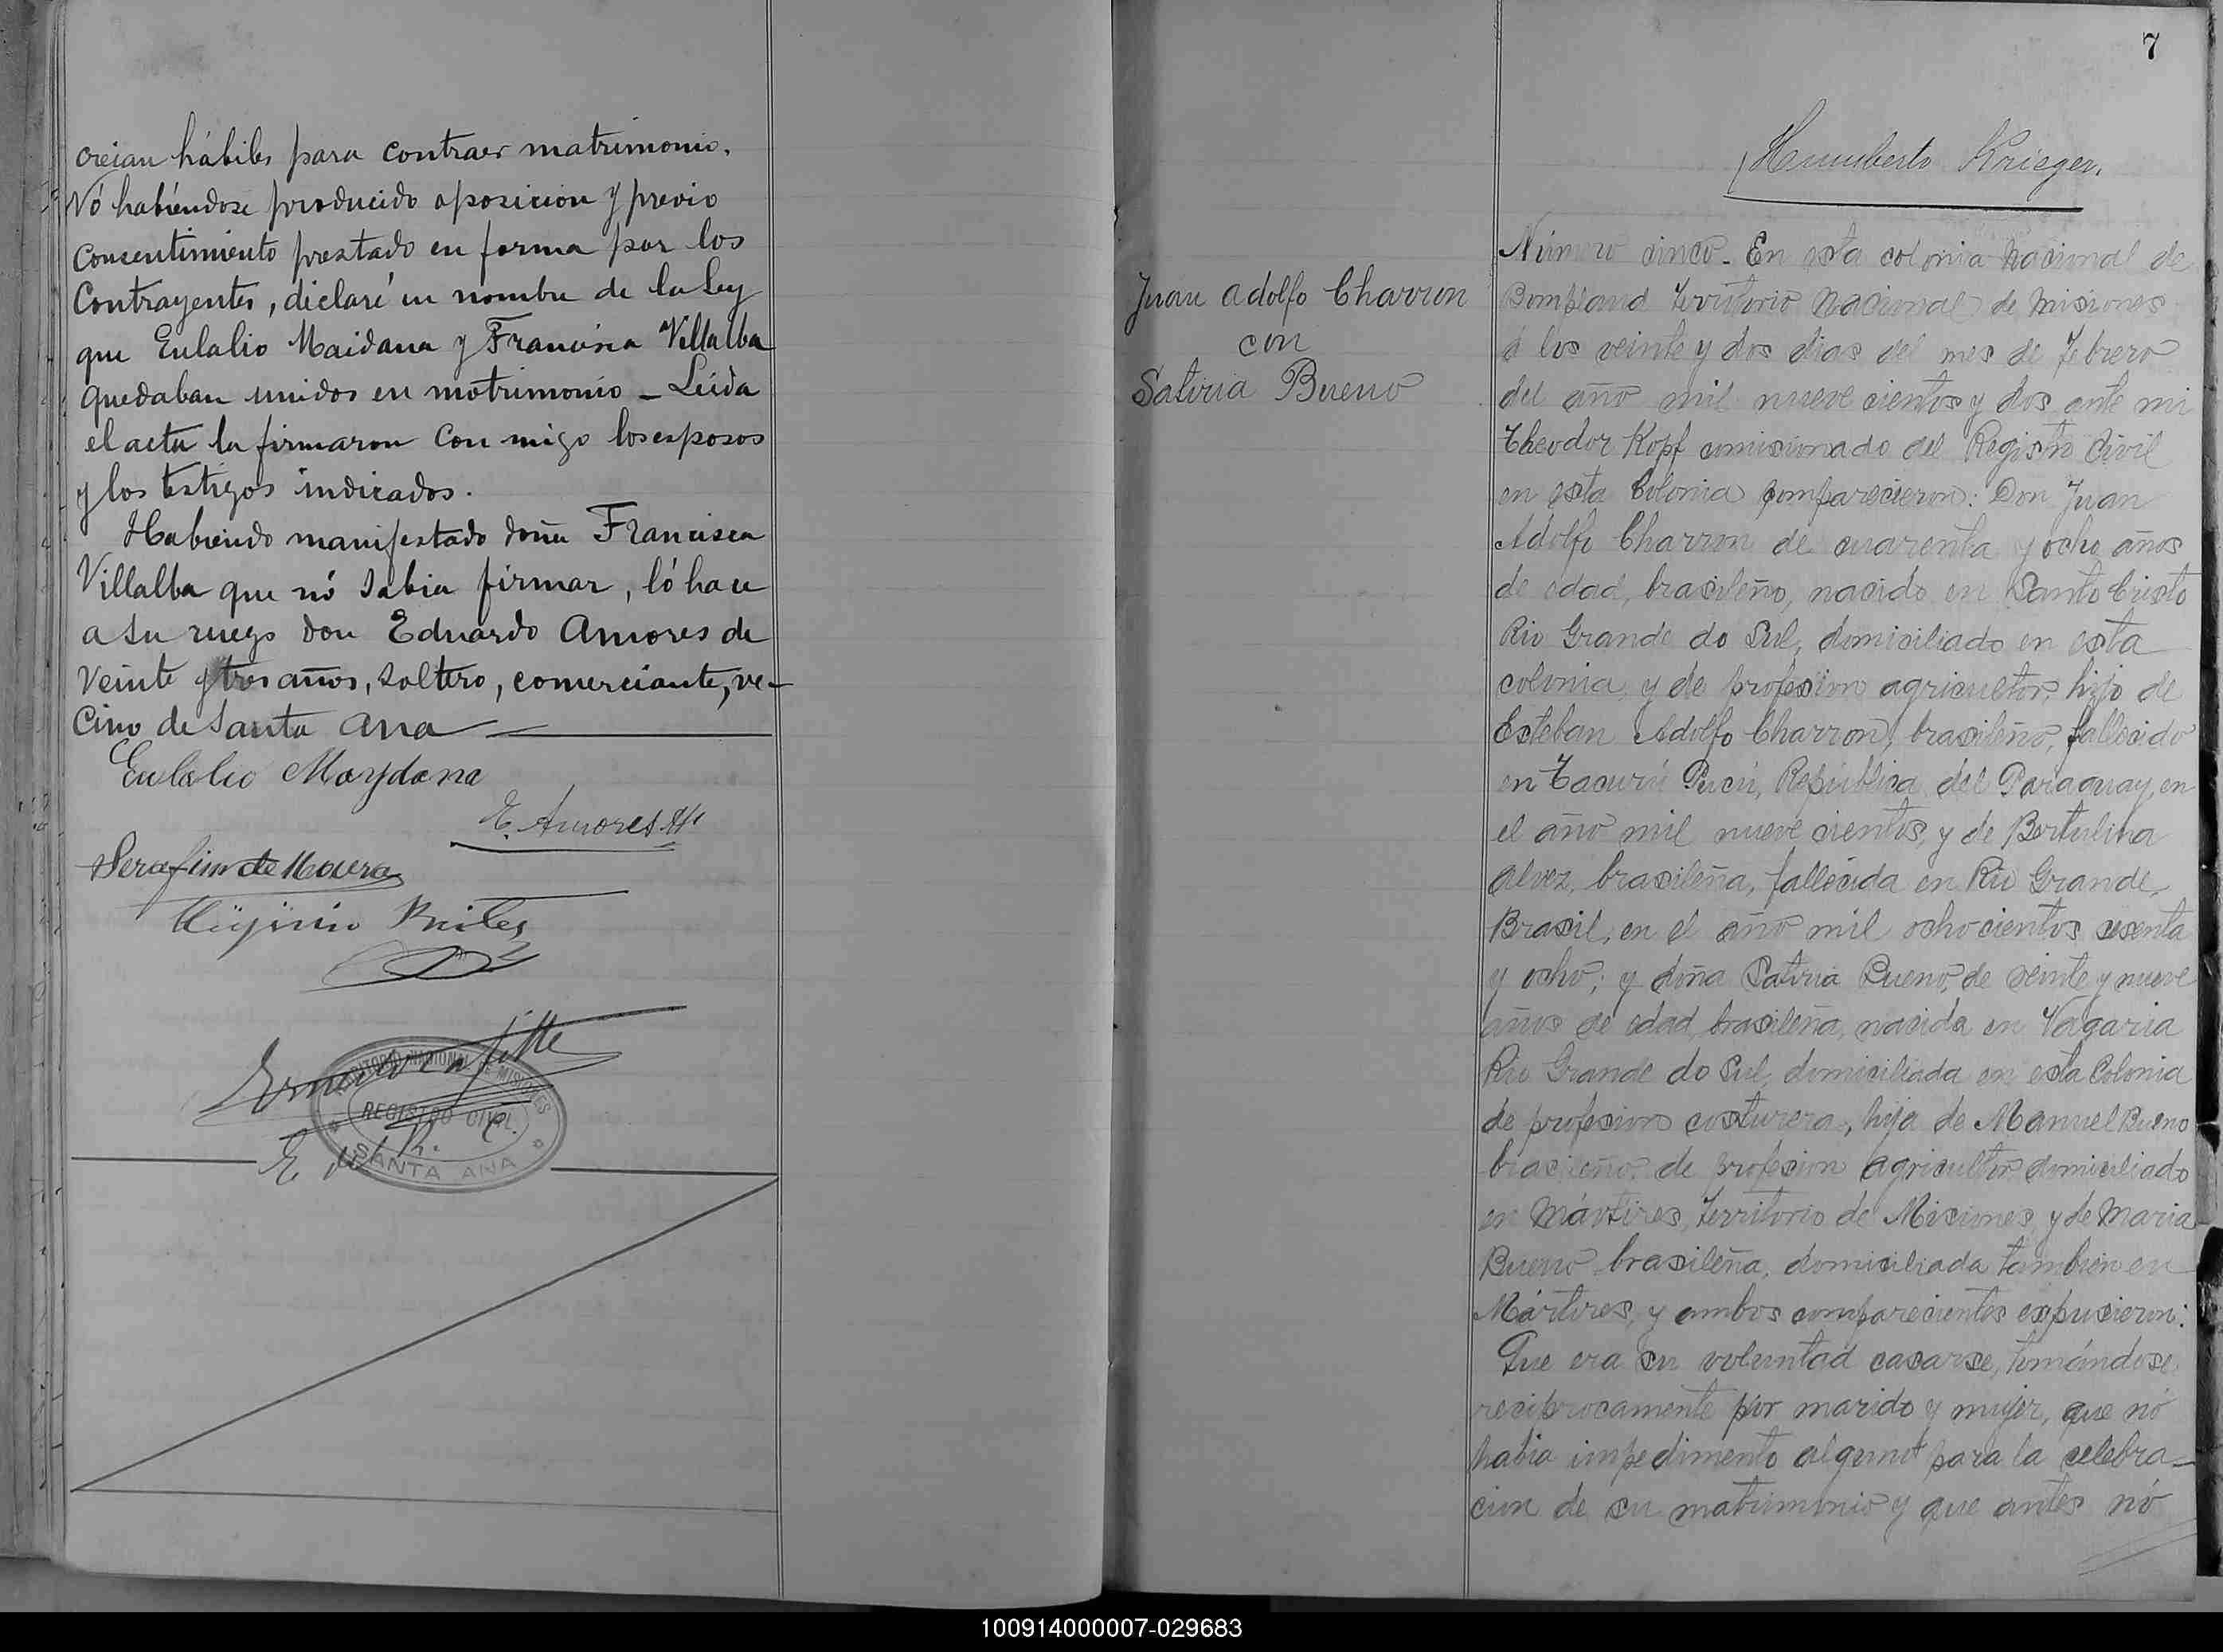 creian hábiles para contraer matrimonio.
Nó habiéndose producido oposicion y previo
consentimiento prestado en forma por los
Contrayentes, declaré en nombre de la Ley
que Eulalio Maidana y Francisca Villalba
quedaban unidos en matrimonio – Leida
el acta la firmaron con migo los esposos
y los testigos indicados.
Habiendo manifestado doña Francisca
Villalba que nó sabia firmar, ló hace
a su ruego don Eduardo Amores de
veinte y tres años, soltero, comerciante, ve-
cino de Santa Ana
Eulalio Maydana
E. Amores
Serafin de Moura
Higinio Brites
TERRITORIO NACIONAL DE MISIONES
REGISTRO CIVIL
SANTA ANA
E. del R. C.
7
Humberto Krieger.
Juan Adolfo Charron
con
Satiria Bueno
Número cinco – En esta colonia nacional de
Bompland territorio nacional de Misiones
á los veinte y dos dias del mes de Febrero
del año mil nueve cientos y dos ante mi
Theodor Kopf comisionado del Registro Civil
en esta Colonia comparecieron: Don Juan
Adolfo Charron de cuarenta y ocho años
de edad, brasileño, nacido en Santo Cristo
Rio Grande do Sul, domiciliado en esta
colonia y de profesion agricultor, hijo de
Esteban Adolfo Charron, brasileño, fallecido
en Tacurú Pucú, República del Paraguay, en
el año mil nueve cientos, y de Bertulina
Alvez, brasileña, fallecida en Rio Grande,
Brasil, en el año mil ochocientos sesenta
y ocho; y doña Satiria Bueno, de veinte y nueve
años de edad, brasileña, nacida en Vagaria
Rio Grande do Sul, domiciliada en esta Colonia
de profesion costurera, hija de Manuel Bueno
brasileño, de profesion agricultor domiciliado
en Mártires, territorio de Misiones, y de Maria
Bueno brasileña, domiciliada tambien en
Mártires, y ambos comparecientes expusieron:
Que era su voluntad casarse, tomándose
reciprocamente por marido y mujer, que nó
habia impedimento alguno para la celebra-
cion de su matrimonio y que antes nó
100914000007-029683